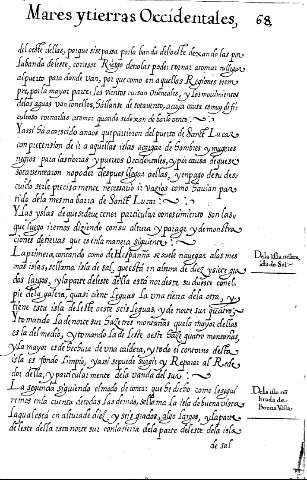 Mares y tierras Occidentales, 68
del oeste dellas, porque si se pasa por la banda del oeste dexandolas por
la banda del este, corresse Riezgo de no las poder tornar a tomar ni llegar
al puerto para donde van, por que como en aquellas Regiones siem
pre, por la mayor parte, los vientos cursan Orientales, y los movimientos
delas aguas van con ellos, hallanse de sotavento, a cuya causa es muy difi
cultoso tornarlas a tomar quando se dexan de barlovento.
Y assi ha acontescido a naos que partieron del puerto de Sanct Lucar
con pretension de ir a aquellas islas a cargar de hombres y mugeres
negros para las tierras y puertos Occidentales, y por causa de que se
sotaventaron no poder despues llegar a ellas, y en pago de su des
cuido serle precisamente necessario ir vazios como havian par
tido dela mesma barra de Sanct Lucar.
Y las yslas de que se deve tener particular conoscimiento son las
que luego iremos diziendo con su altura y parage y demonstra
ciones de tierras que es en la manera siguiente.
La primera, contando como de Hespanna se suele navegar a las mes
mas islas, se llama, isla de sal, questa en altura de diez y siete gra
dos largos, y la parte del este della esta nordeste sudueste con el
pie dela galera, quasi cient leguas la una tierra dela otra, y
tiene esta isla de leste oeste seis leguas, y de norte sur quatro.
Y tomando la de norte sur haze tres montañas quela mayor dellas
es la del medio, y tomando la de leste oeste haze quatro montañas
y la mayor esta hechura de una caldera, y todo el contorno della
isla es fondo limpio, y assi se puede surgir y Reparar al Rede
dor della, y particularmente dela vanda del sur.
La segunda siguiendo el modo de contar que he dicho como lo segui
remos en la cuenta de todas las demas, se llama la isla de buena vista
la qual esta en altura de diez y seys grados, algo largos, y la parte
del este della esta norte sur con la tierra dela parte del este dela isla
de sal
Dela isla nõbra
da de Sal.
Dela isla nõ
brada de
Buena Vista.